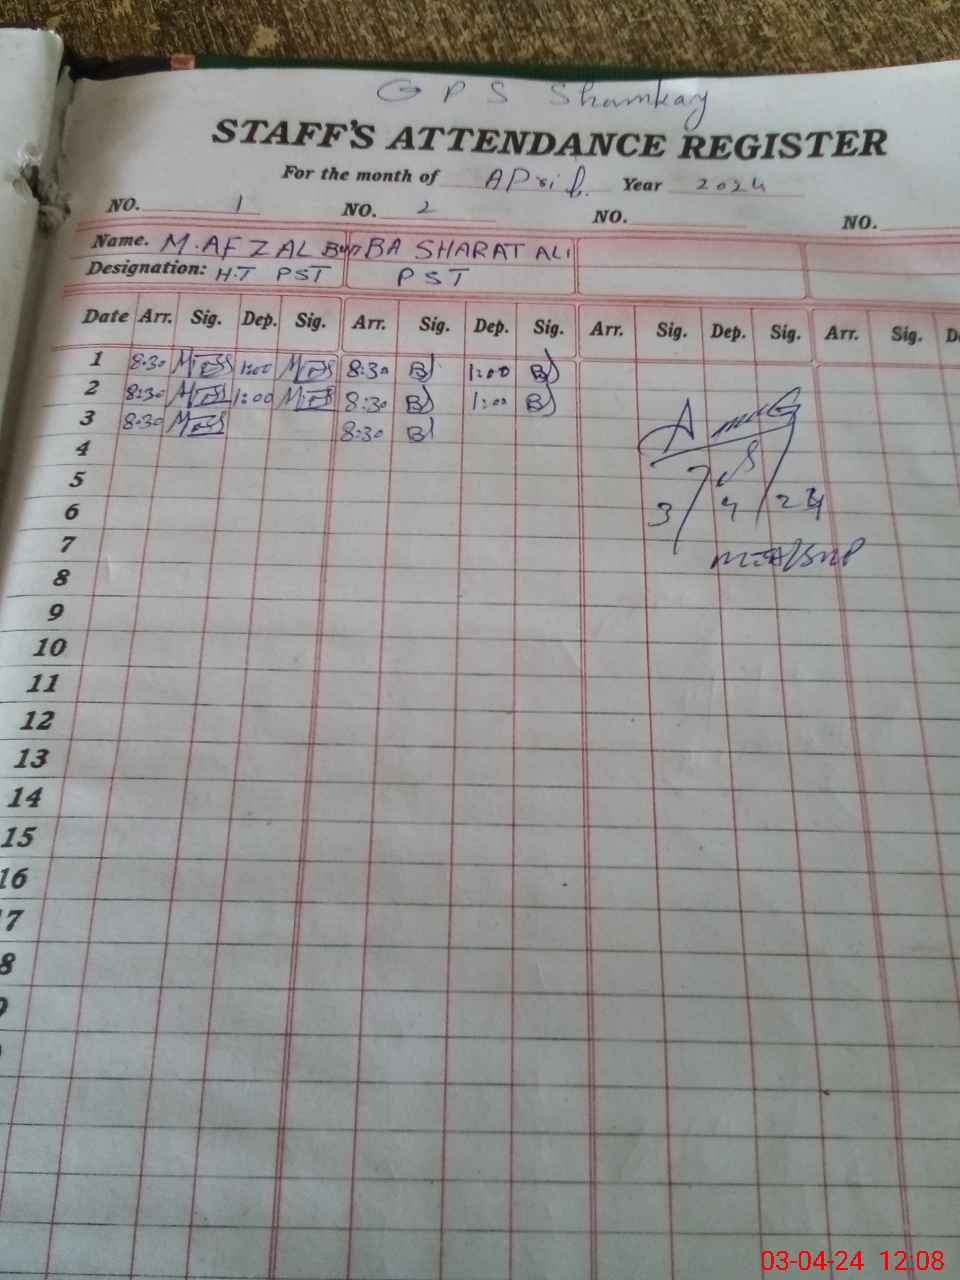 GPS Shamkay
STAFF'S ATTENDANCE REGISTER
For the month of April. Year 2024
NO. 1 NO. 2 NO. NO.
Name. M. AFZAL BUTT BASHARAT ALI
Designation: H.T PST PST
Date Arr. Sig. Dep. Sig. Arr. Sig. Dep. Sig. Arr. Sig. Dep. Sig. Arr. Sig.
1 8:30 1:00 8:30 1:00
2 8:30 1:00 8:30 1:00
3 8:30 8:30
4
5
6 3/4/24
7
8
9
10
11
12
13
14
15
16
7
8
03-04-24 12:08